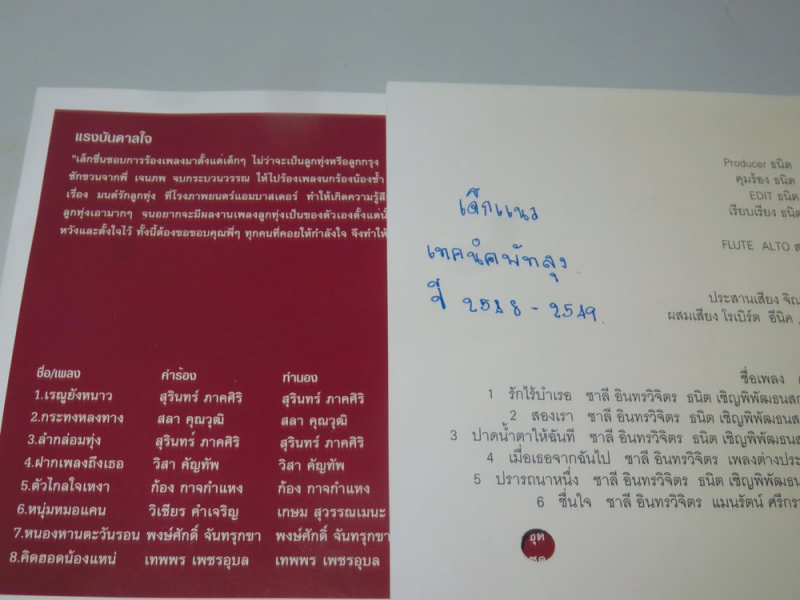 แรงบันดาลใจ
"เล็กชื่นชอบการร้องเพลงมาตั้งแต่เด็กๆ ไม่ว่าจะเป็นลูกทุ่งหรือลูกกรุง
ชักชวนจากพี่ เจนภพ จบกระบวนวรรณ ให้ไปร้องเพลงนกร้องน้องช้ำ
เรื่อง มนต์รักลูกทุ่ง ที่โรงภาพยนตร์แอมบาสเดอร์ ทำให้เกิดความรู้สึ
ลูกทุ่งเอามากๆ จนอยากจะมีผลงานเพลงลูกทุ่งเป็นของตัวเองตั้งแต่นั้
หวังและตั้งใจไว้ ทั้งนี้ต้องขอขอบคุณพี่ๆ ทุกคนที่คอยให้กำลังใจ จึงทำให้
ชื่อ/เพลง คำร้อง ทำนอง
1.เรณูยังหนาว สุรินทร์ ภาคศิริ สุรินทร์ ภาคศิริ
2.กระทงหลงทาง สลา คุณวุฒิ สลา คุณวุฒิ
3.ลำกล่อมทุ่ง สุรินทร์ ภาคศิริ สุรินทร์ ภาคศิริ
4.ฝากเพลงถึงเธอ วิสา คัญทัพ วิสา คัญทัพ
5.ตัวไกลใจเหงา ก้อง กาจกำแหง ก้อง กาจกำแหง
6.หนุ่มหมอแคน วิเชียร คำเจริญ เกษม สุวรรณเมนะ
7.หนองหานตะวันรอน พงษ์ศักดิ์ จันทรุกขา พงษ์ศักดิ์ จันทรุกขา
8.คิดฮอดน้องแหน่ เทพพร เพชรอุบล เทพพร เพชรอุบล
เด็กแนว
เทคนิคพัทลุง
ปี 2548 - 2549
Producer ธนิต
คุมร้อง ธนิต
EDIT ธนิต
เรียบเรียง ธนิต
FLUTE ALTO ส
ประสานเสียง จิณ
ผสมเสียง โรเบิร์ต อีนิค
ชื่อเพลง
1 รักไร้บำเรอ ชาลี อินทรวิจิตร ธนิต เชิญพิพัฒธนสก
2 สองเรา ชาลี อินทรวิจิตร ธนิต เชิญพิพัฒธนส
3 ปาดน้ำตาให้ฉันที ชาลี อินทรวิจิตร ธนิต เชิญพิพัฒธนส
4 เมื่อเธอจากฉันไป ชาลี อินทรวิจิตร เพลงต่างประ
5 ปรารถนาหนึ่ง ชาลี อินทรวิจิตร ธนิต เชิญพิพัฒธนส
6 ชื่นใจ ชาลี อินทรวิจิตร แมนรัตน์ ศรีกร